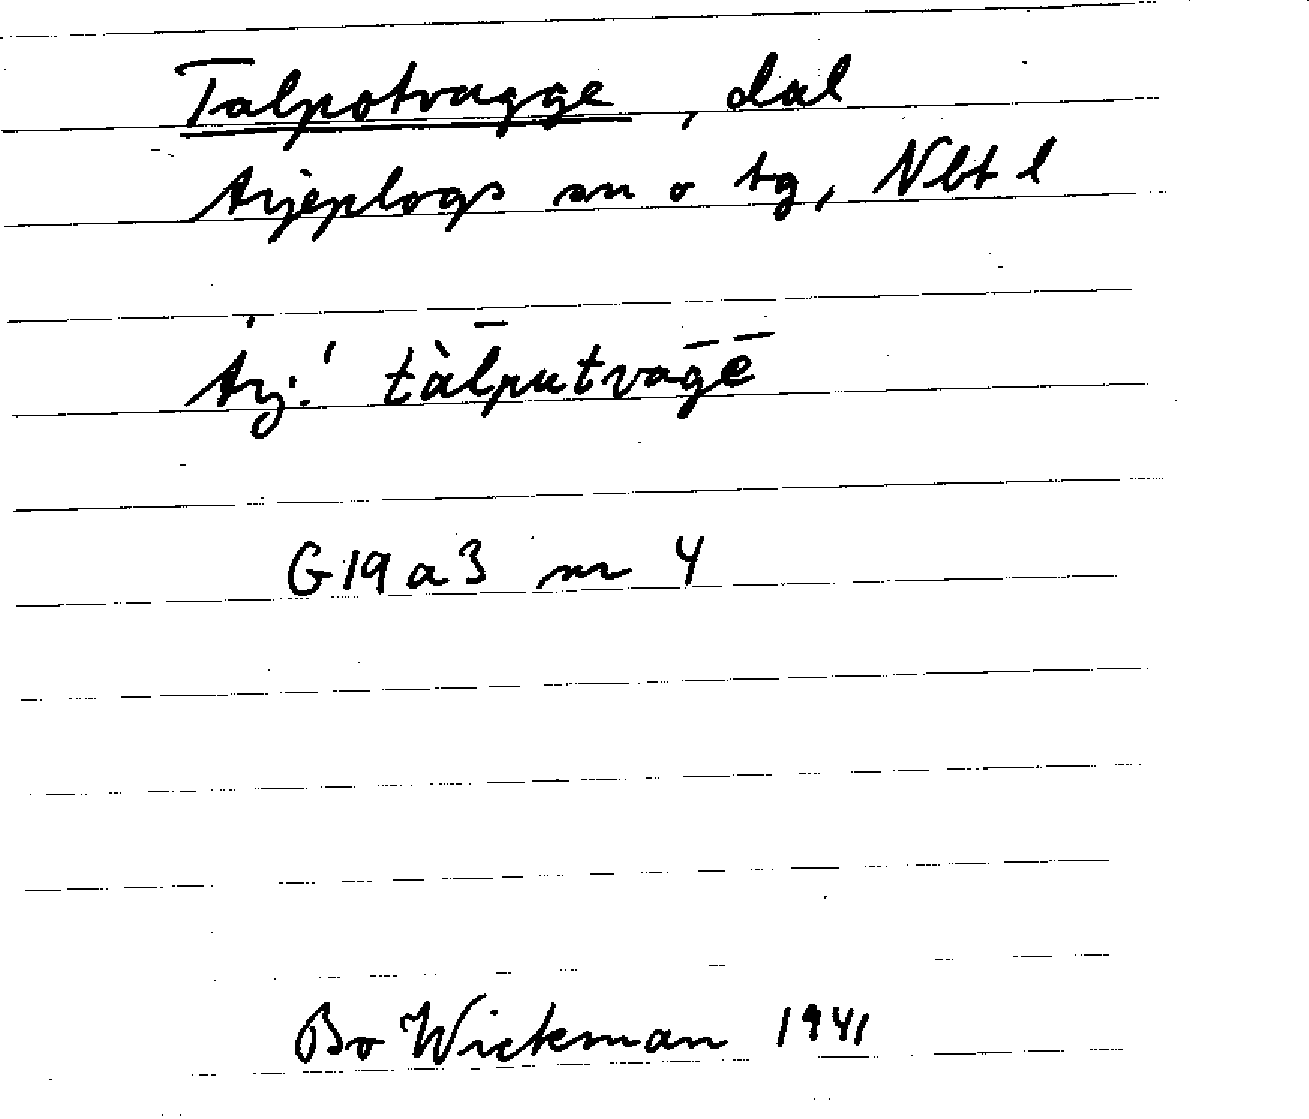 Talpotvagge, dal
Arjeplogs sn o tg, Nbt l
Arj.: ' tàl̄putvaḡē
G19a3 nr 4
Bo Wickman 1941